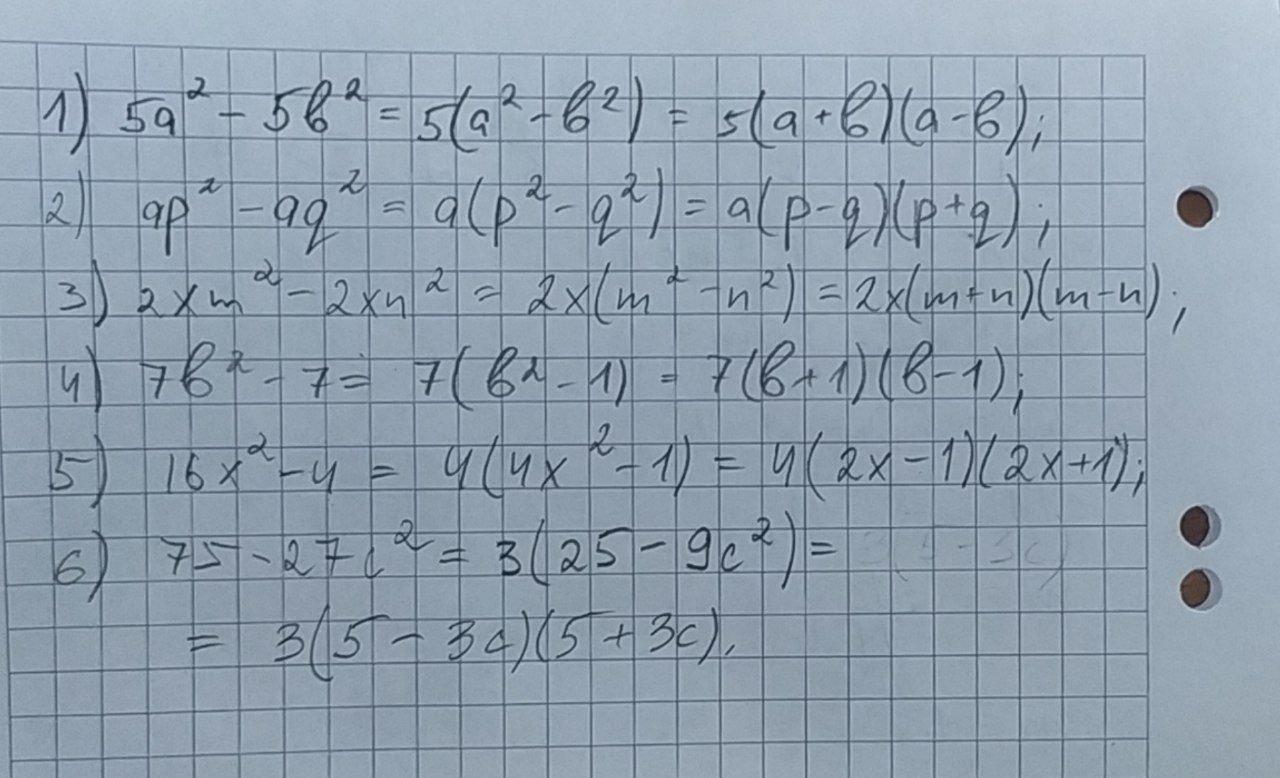 1) 5a² - 5b² = 5(a² - b²) = 5(a + b)(a - b);
2) ap² - aq² = a(p² - q²) = a(p - q)(p + q);
3) 2xm² - 2xn² = 2x(m² - n²) = 2x(m + n)(m - n);
4) 7b² - 7 = 7(b² - 1) = 7(b + 1)(b - 1);
5) 16x² - 4 = 4(4x² - 1) = 4(2x - 1)(2x + 1);
6) 75 - 27c² = 3(25 - 9c²) =
= 3(5 - 3c)(5 + 3c).